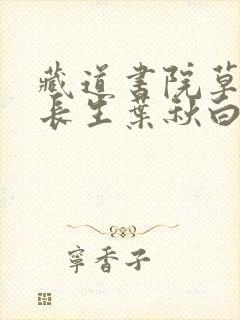 藏道書院草
長生葉秋白
寧香子